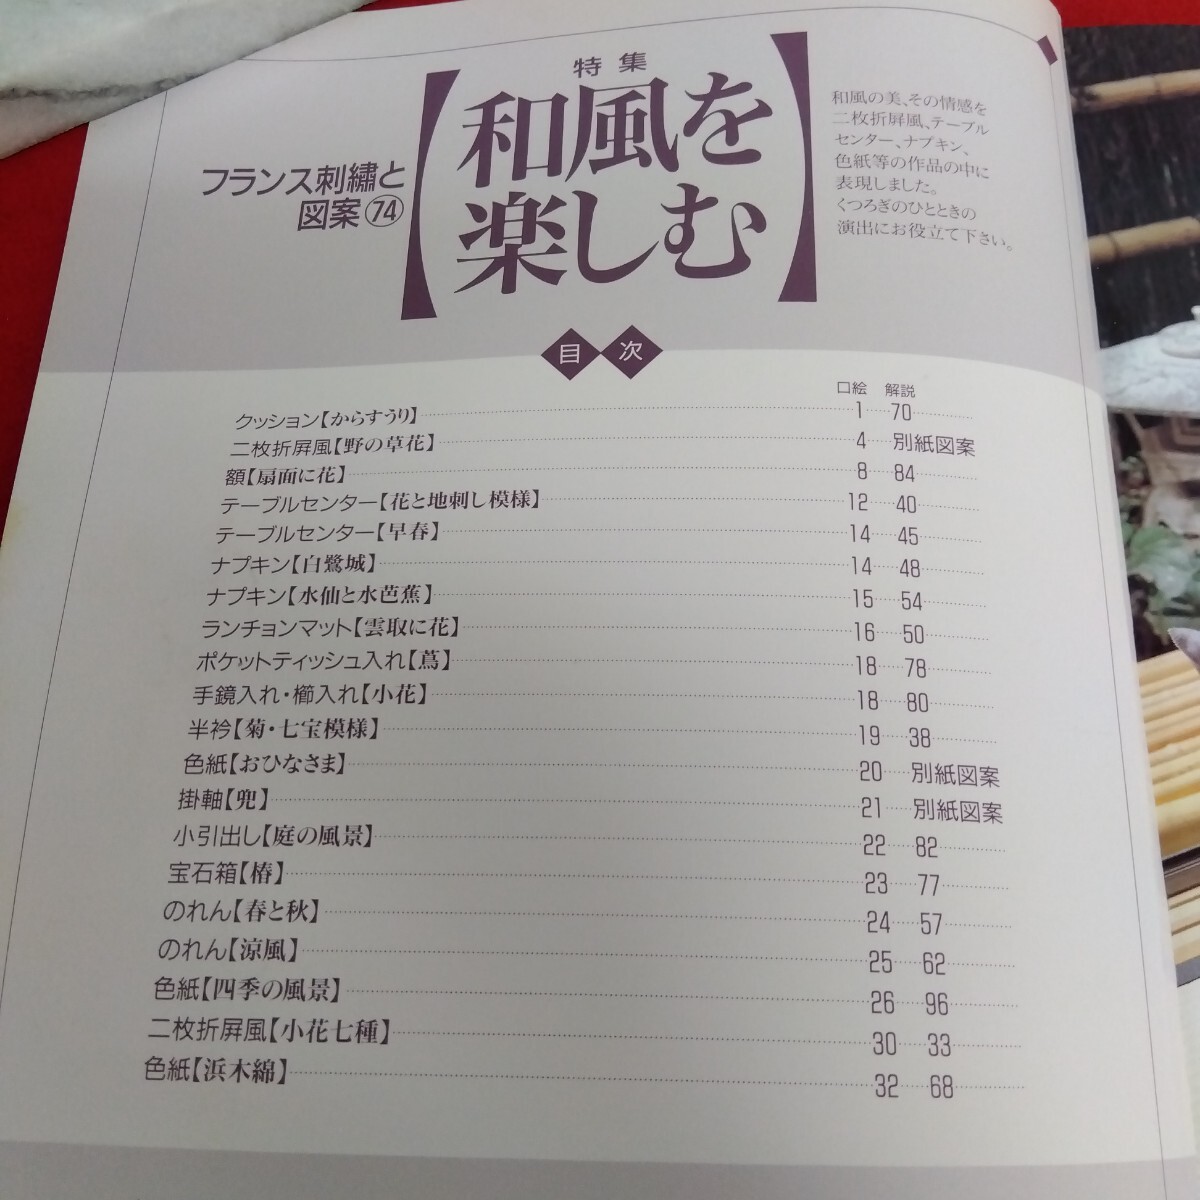 特集
フランス刺繡と
図案74
【和風を
楽しむ】
和風の美、その情感を
二枚折屏風、テーブル
センター、ナプキン、
色紙等の作品の中に
表現しました。
くつろぎのひとときの
演出にお役立て下さい。
目次
口絵 解説
クッション【からすうり】 1 70
二枚折屏風【野の草花】 4 別紙図案
額【扇面に花】 8 84
テーブルセンター【花と地刺し模様】 12 40
テーブルセンター【早春】 14 45
ナプキン【白鷺城】 14 48
ナプキン【水仙と水芭蕉】 15 54
ランチョンマット【雲取に花】 16 50
ポケットティッシュ入れ【蔦】 18 78
手鏡入れ・櫛入れ【小花】 18 80
半衿【菊・七宝模様】 19 38
色紙【おひなさま】 20 別紙図案
掛軸【兜】 21 別紙図案
小引出し【庭の風景】 22 82
宝石箱【椿】 23 77
のれん【春と秋】 24 57
のれん【涼風】 25 62
色紙【四季の風景】 26 96
二枚折屏風【小花七種】 30 33
色紙【浜木綿】 32 68